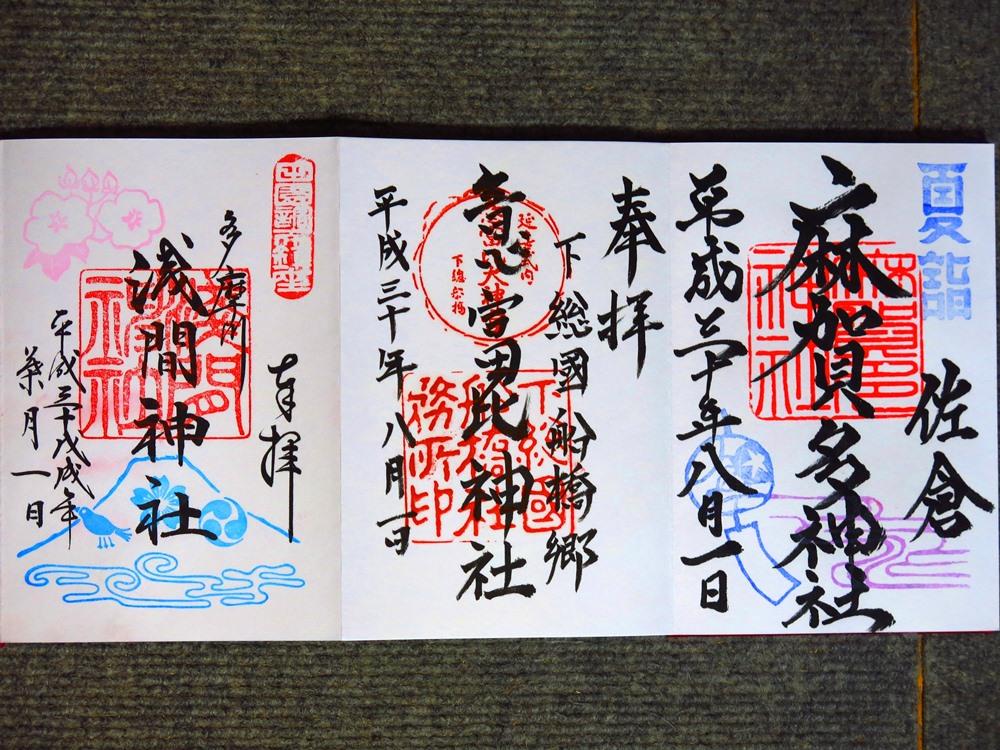 夏詣
佐倉
麻賀多神社
平成三十年八月一日
奉拝
下総國船橋郷
意冨比神社
平成三十年八月一日
下総國
船橋大神宮
延喜式内
務所印
奉拝
多摩川
浅間神社
平成三十戊戌年
葉月一日
浅間神社